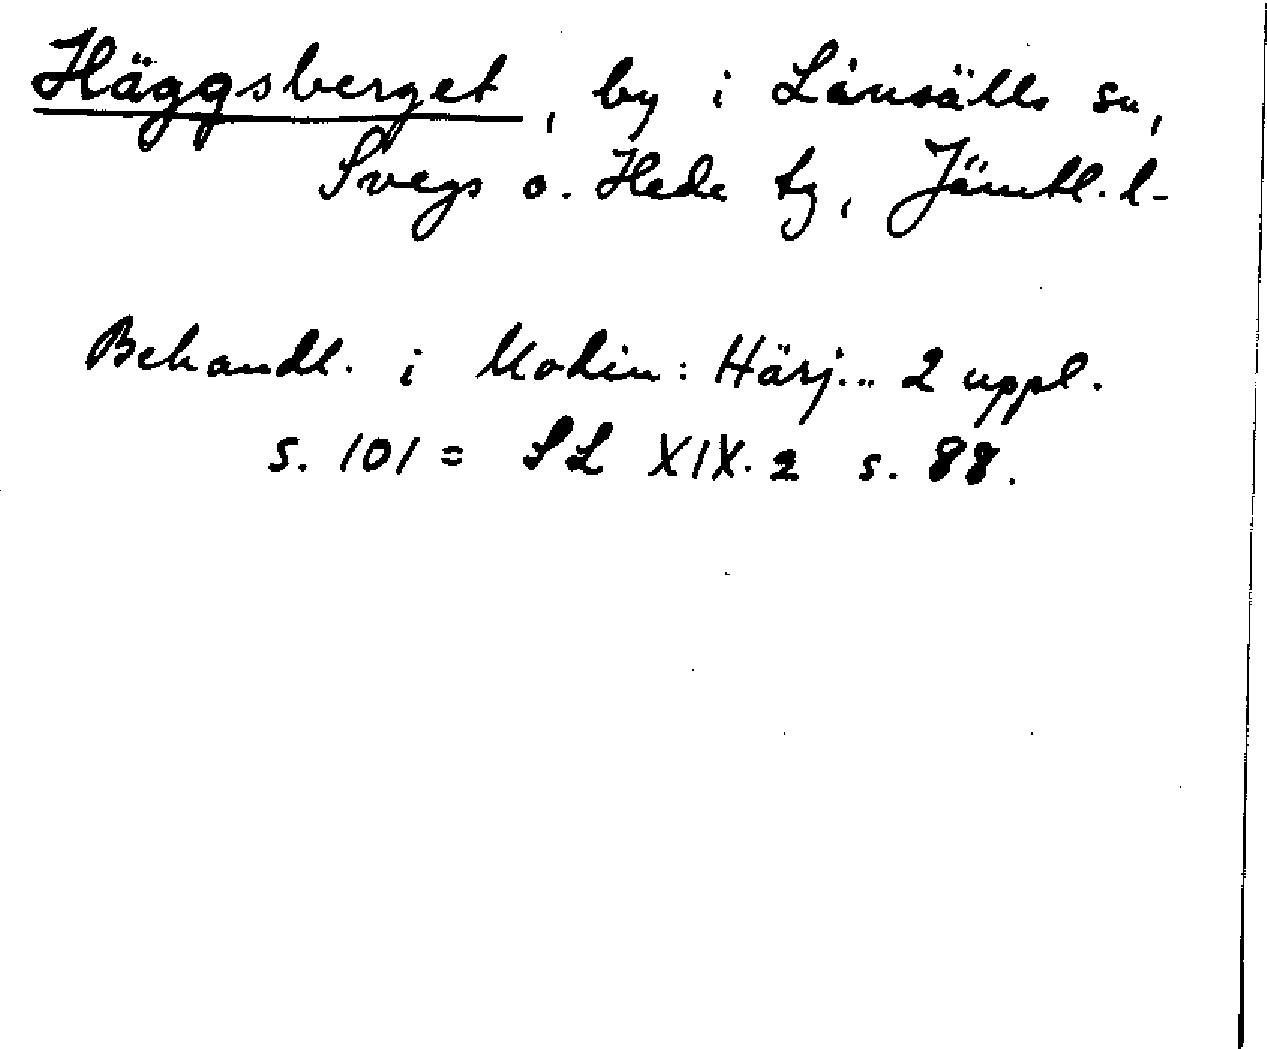 Häggsberget, by i Linsälls sn,
Svegs o. Hede tg, Jämtl. l.
Behandl. i Modin: Härj... 2 uppl.
s. 101 = SL XIX. 2 s. 88.